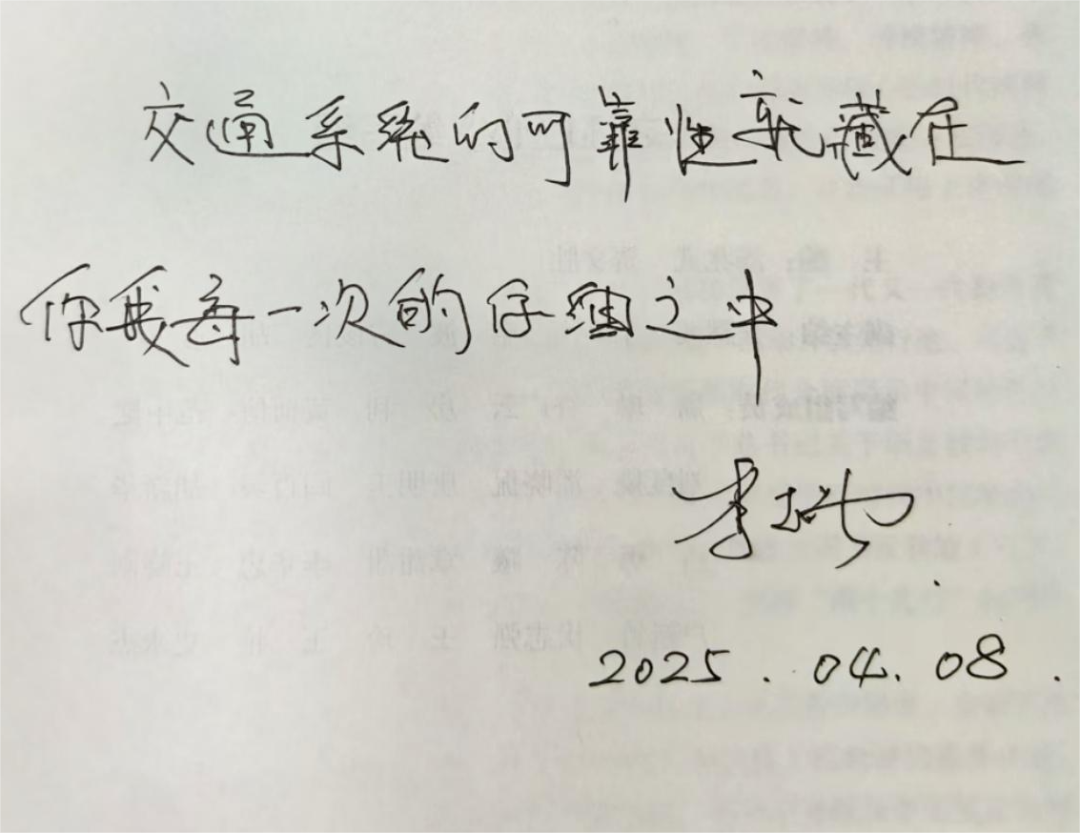 交通系统的可靠性就藏在
你我每一次的仔细之中
李
2025.04.08.